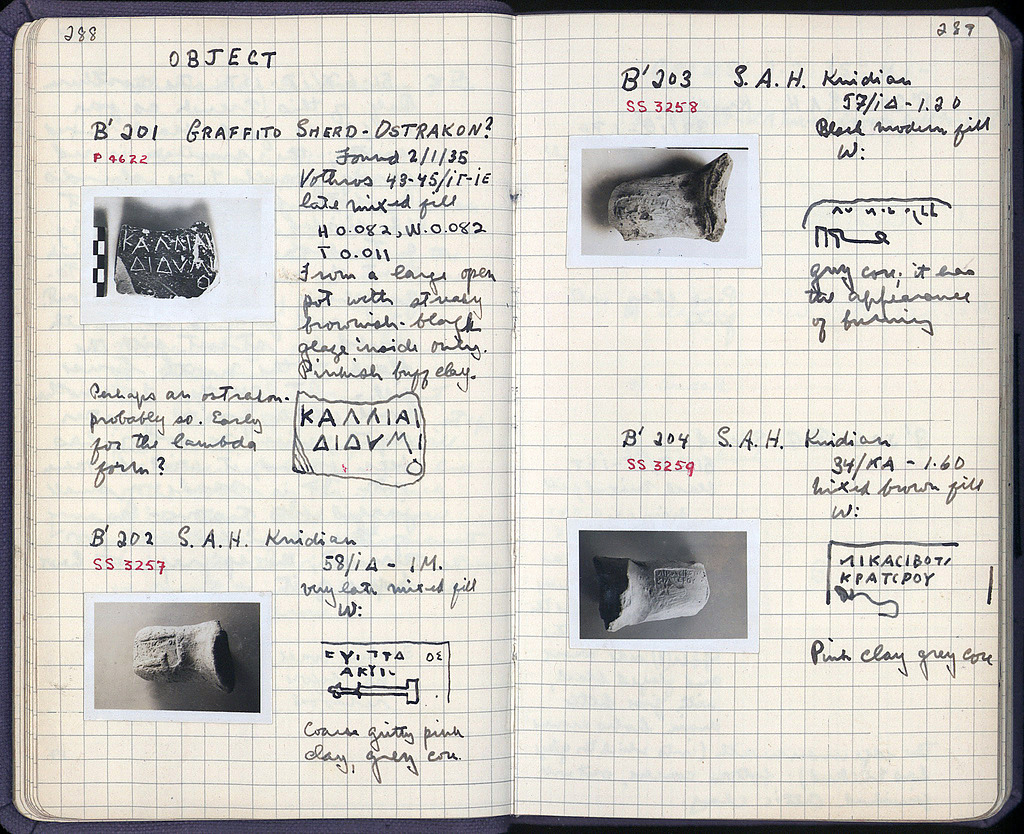 288
OBJECT
B' 201 GRAFFITO SHERD-OSTRAKON?
P 4622
Found 2/1/35
Vothros 43-45/ΙΓ-ΙΕ
late mixed fill
H 0.082, W. 0.082
T 0.011
From a large open
pot with streaky
brownish-black
glaze inside only.
Pinkish buff clay.
ΚΑΛΛΙΑΙ
ΔΙΔΥΜΙ
Ο
Perhaps an ostrakon.
probably so. Early
for the lambda
form?
ΚΑΛΛΙΑΙ
ΔΙΔΥΜΙ
Ο
B' 202 S.A.H. Knidian
SS 3257
58/ΙΔ - 1M.
very late mixed fill
W:
ΔΕ
ΑΚΤΙ
Coarse gritty pink
clay, grey core
289
B' 203 S.A.H. Knidian
SS 3258
57/ΙΔ - 1.20
Black modern fill
W:
grey core. it has
the appearance
of burning
B' 204 S.A.H. Knidian
SS 3259
34/ΚΑ - 1.60
Mixed brown fill
W:
ΛΙΚΑΣΙΒΟΤ
ΚΡΑΤΕΡΟΥ
Pink clay grey core